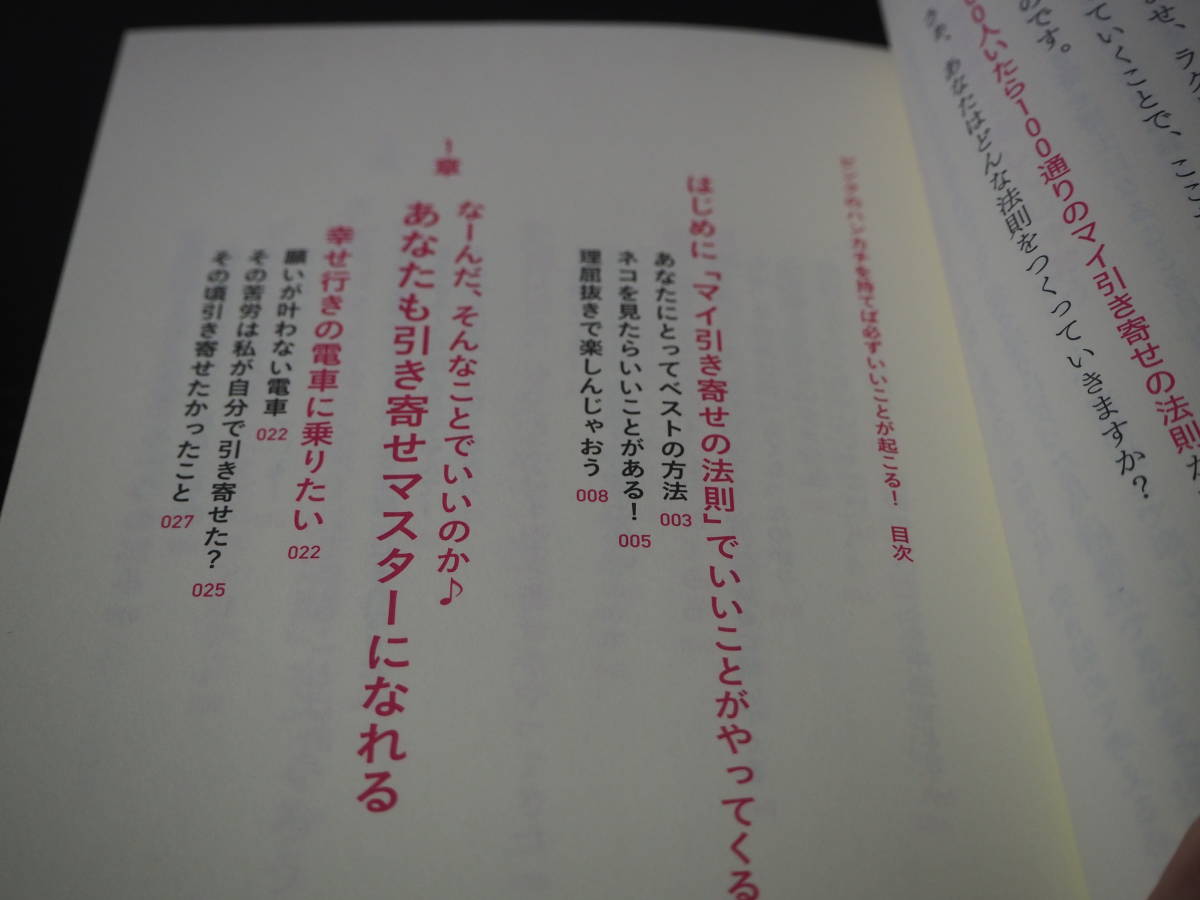 ませ、ラク
ていくことで、ここ
のです。
00人いたら100通りのマイ引き寄せの法則
さあ、あなたはどんな法則をつくっていきますか？
ピンクのハンカチを持てば必ずいいことが起こる！ 目次
はじめに「マイ引き寄せの法則」でいいことがやってくる
あなたにとってベストの方法 003
ネコを見たらいいことがある！ 005
理屈抜きで楽しんじゃおう 008
1章
なーんだ、そんなことでいいのか♪
あなたも引き寄せマスターになれる
幸せ行きの電車に乗りたい 022
願いが叶わない電車 022
その苦労は私が自分で引き寄せた？ 025
その頃引き寄せたかったこと 027